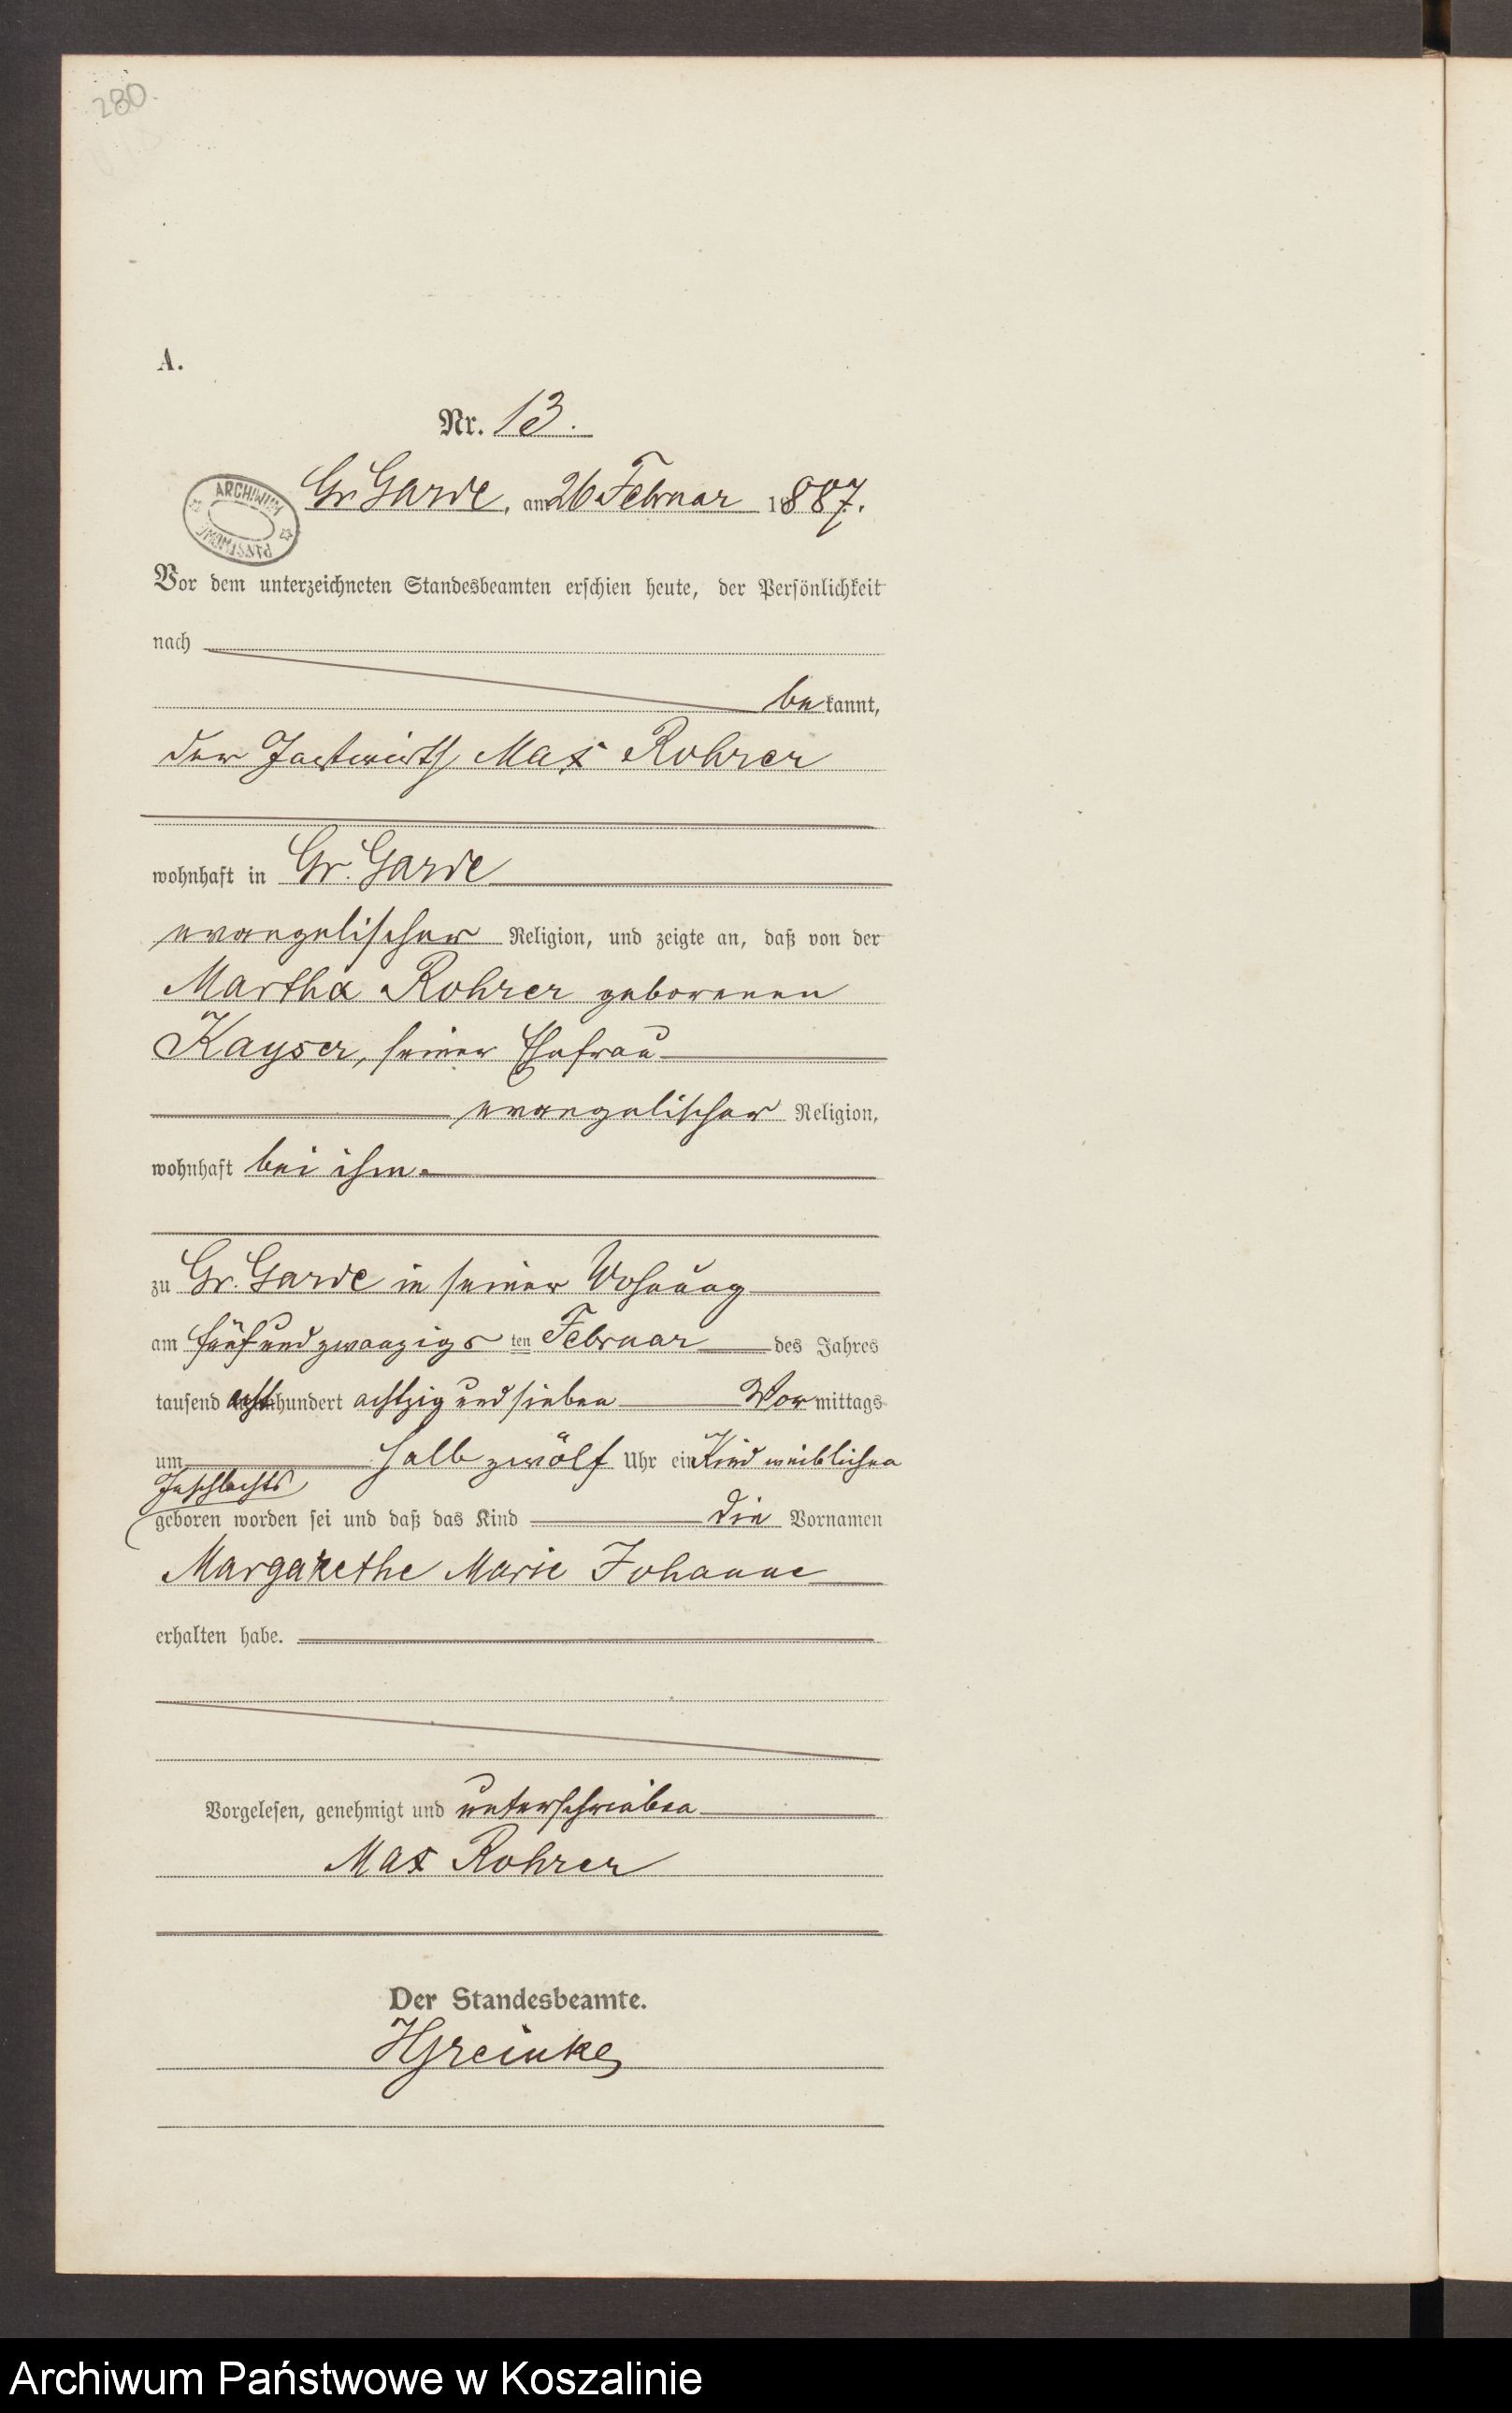 280.
A.
Nr. 13.
ARCHIWUM PAŃSTWOWE
Gr Garde, am 26 Februar 1887.
Vor dem unterzeichneten Standesbeamten erschien heute, der Persönlichkeit
nach
bekannt,
der Gastwirth Max Rohrer
wohnhaft in Gr. Garde
evangelischer Religion, und zeigte an, daß von der
Martha Rohrer geborenen
Kayser, seiner Ehefrau
evangelischer Religion,
wohnhaft bei ihm.
zu Gr. Garde in seiner Wohnung
am fünfundzwanzigsten Februar des Jahres
tausend achthundert achtzig und sieben Vormittags
um halb zwölf Uhr ein Kind weiblichen
Geschlechts
geboren worden sei und daß das Kind die Vornamen
Margarethe Marie Johanne
erhalten habe.
Vorgelesen, genehmigt und unterschrieben
Max Rohrer
Der Standesbeamte.
HGreinke
Archiwum Państwowe w Koszalinie